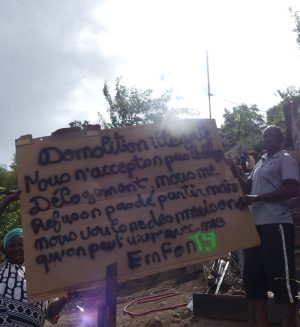 Demolition illegale
Nous n'accepton pas
Délogement. nous me
Refuson pa dé partir mais
nous voulone des maison
qu'on peut vivre avec nos
EnFonts